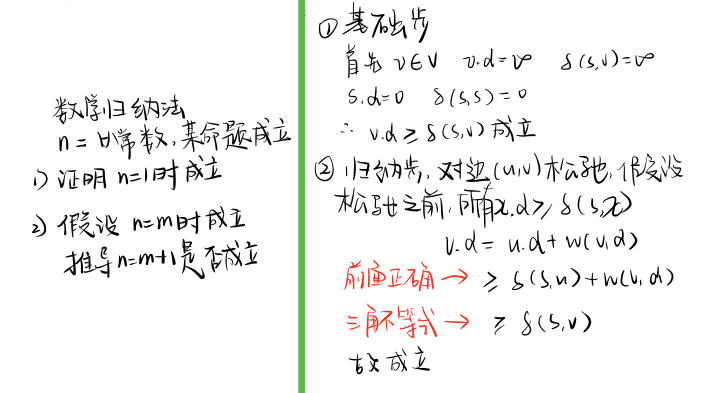 数学归纳法
n = 为常数,某命题成立
1) 证明 n=1时成立
2) 假设 n=m时成立
推导n=m+1是否成立
① 基础步
首先 v∈V v.d=∞ δ(s,v)=∞
s.d=0 δ(s,s)=0
∴ v.d ≥ δ(s,v) 成立
② 归纳步,对边(u,v)松弛,假设
松弛之前,所有x.d ≥ δ(s,x)
v.d = u.d + w(v,d)
前面正确 → ≥ δ(s,u)+w(v,d)
三角不等式 → ≥ δ(s,v)
故成立